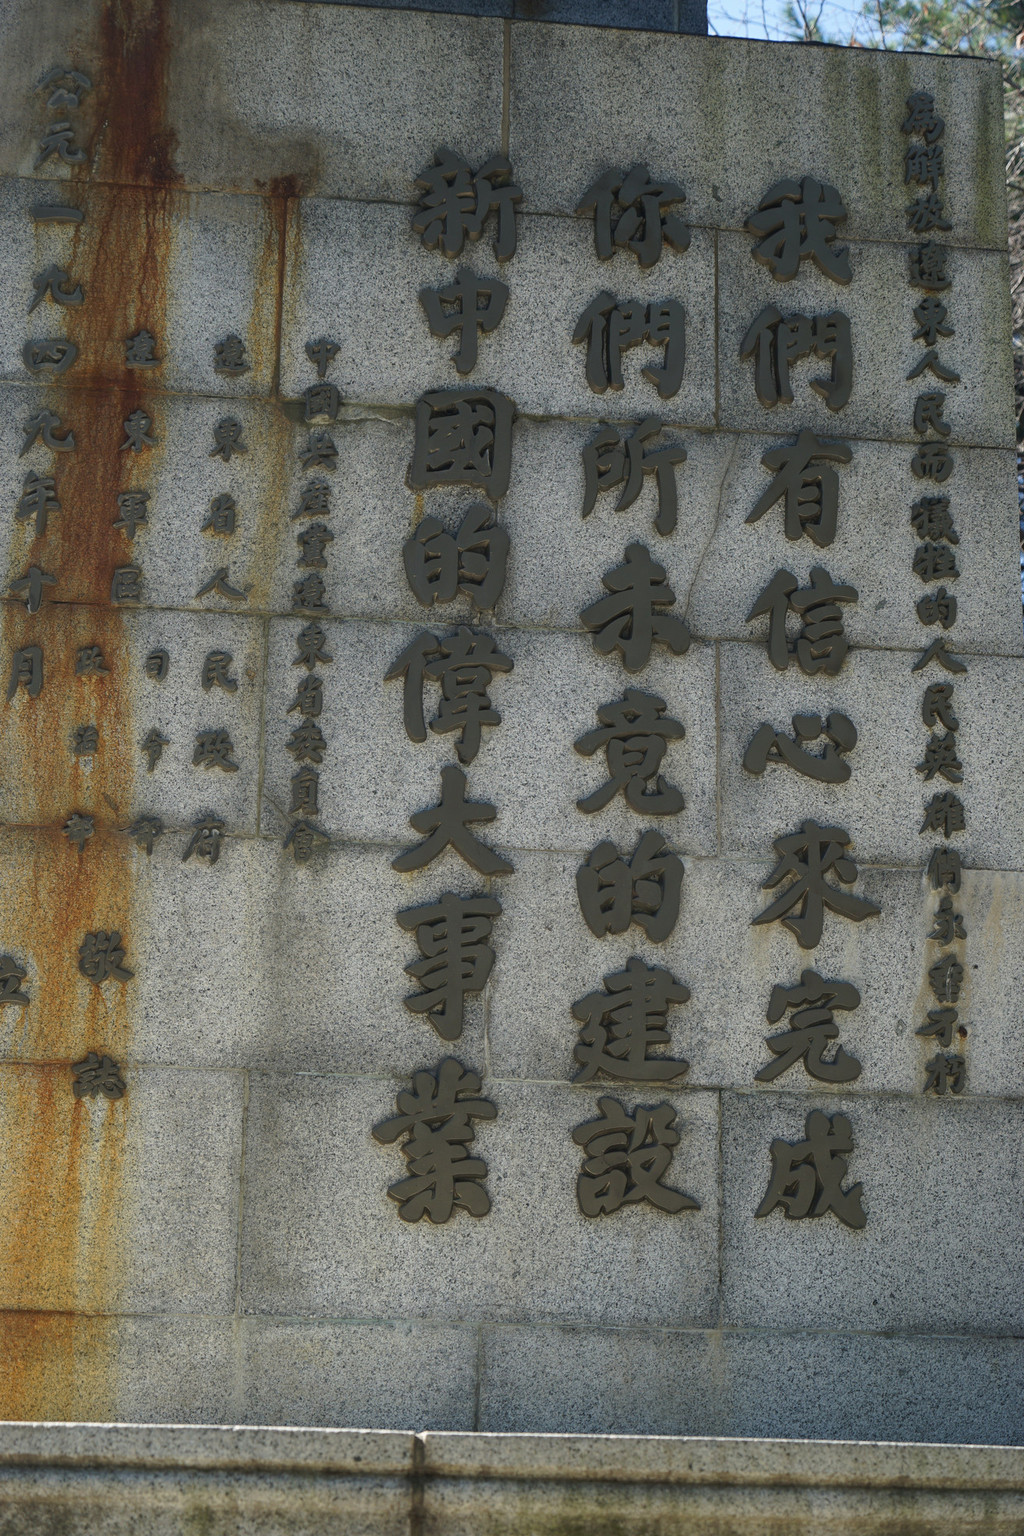 為解放遼東人民而犧牲的人民英雄們永垂不朽
我們有信心來完成
你們所未竟的建設
新中國的偉大事業
中國共產黨遼東省委員會
遼東省人民政府
遼東軍區司令部
政治部
敬誌
公元一九四九年十月
立